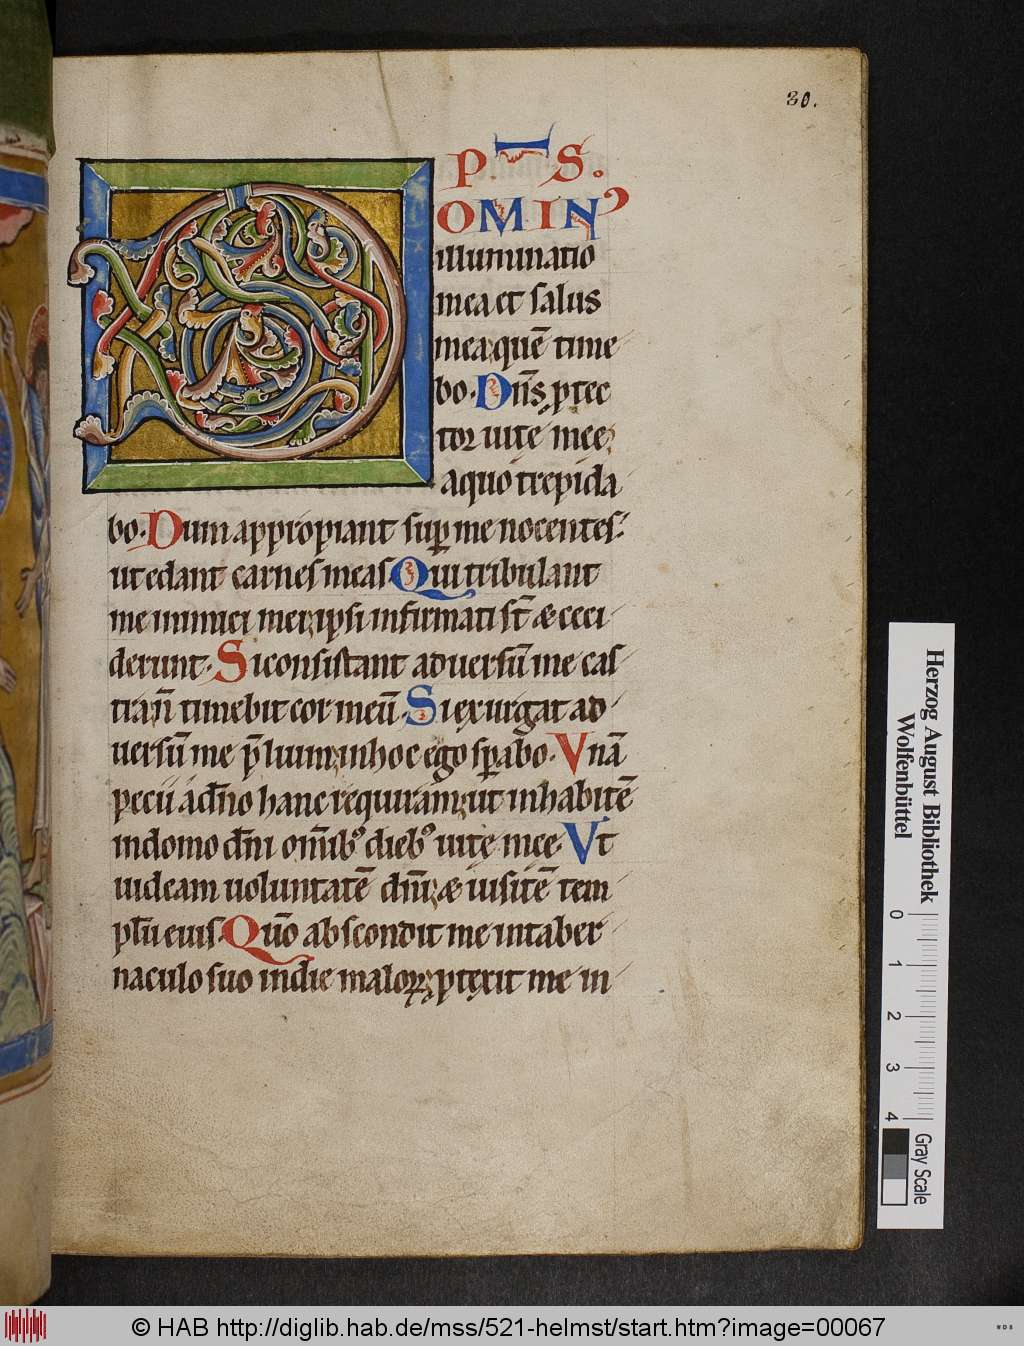 30.
P S.
DOMINꝰ
illuminatio
mea et salus
mea; quē time
bo. Dn̄s ꝓtec
tor uitę meę;
a quo trepida
bo. Dum appropiant suꝑ me nocentes:
ut edant carnes meas. Qui tribulant
me inimici mei; ipsi infirmati st̄ & ceci
derunt. Si consistant aduersū me cas
tra; n̄ timebit cor meū. Si exurgat ad
uersū me p̄lium; in hoc ego sꝑabo. Vnā
pecii a dn̄o hanc requiram; ut inhabitē
in domo dn̄i om̄ibꝰ diebꝰ uitę meę. Vt
uideam uoluntatē dn̄i; & uisitē tem
plū eius. Qm̄o abscondit me in taber
naculo suo in die maloꝝ; ꝓtexit me in
Herzog August Bibliothek
Wolfenbüttel
0 1 2 3 4
Gray Scale
© HAB http://diglib.hab.de/mss/521-helmst/start.htm?image=00067